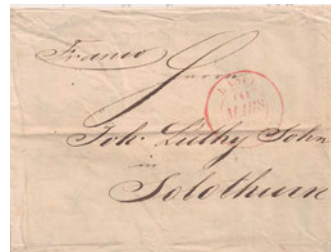 Franco
Herrn
BASEL
MARS
Joh. Lüthy Sohn
in
Solothurn